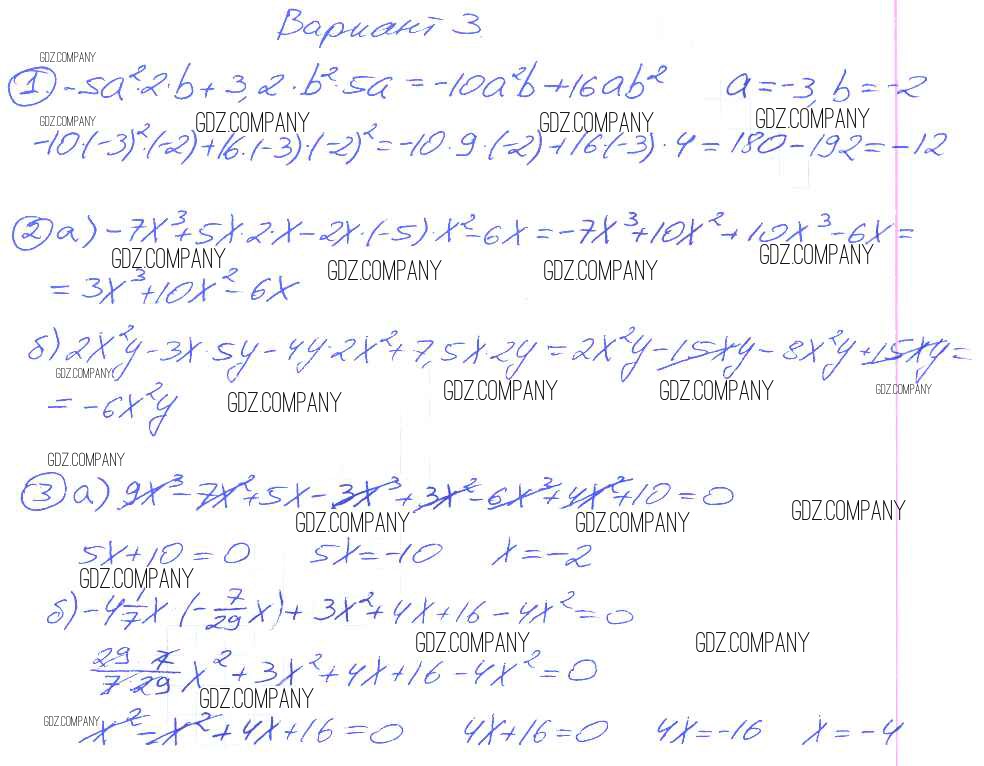 Вариант 3
GDZ.COMPANY
① -5a²·2·b+3,2·b²·5a=-10a²b+16ab² a=-3, b=-2
GDZ.COMPANY GDZ.COMPANY GDZ.COMPANY GDZ.COMPANY
-10·(-3)²·(-2)+16·(-3)·(-2)²=-10·9·(-2)+16·(-3)·4=180-192=-12
② а) -7x³+5x·2·x-2x·(-5)·x²-6x=-7x³+10x²+10x³-6x=
GDZ.COMPANY GDZ.COMPANY GDZ.COMPANY GDZ.COMPANY
=3x³+10x²-6x
б) 2x²y-3x·5y-4y·2x²+7,5x·2y=2x²y-15xy-8x²y+15xy=
GDZ.COMPANY GDZ.COMPANY GDZ.COMPANY GDZ.COMPANY
=-6x²y GDZ.COMPANY
GDZ.COMPANY
③ а) 9x³-7x²+5x-3x³+3x²-6x³+4x²+10=0
GDZ.COMPANY GDZ.COMPANY GDZ.COMPANY
5x+10=0 5x=-10 x=-2
GDZ.COMPANY
б) -4 1/7 x·(-7/29 x)+3x²+4x+16-4x²=0
GDZ.COMPANY GDZ.COMPANY
29·7/7·29 x²+3x²+4x+16-4x²=0
GDZ.COMPANY
GDZ.COMPANY
x²-x²+4x+16=0 4x+16=0 4x=-16 x=-4